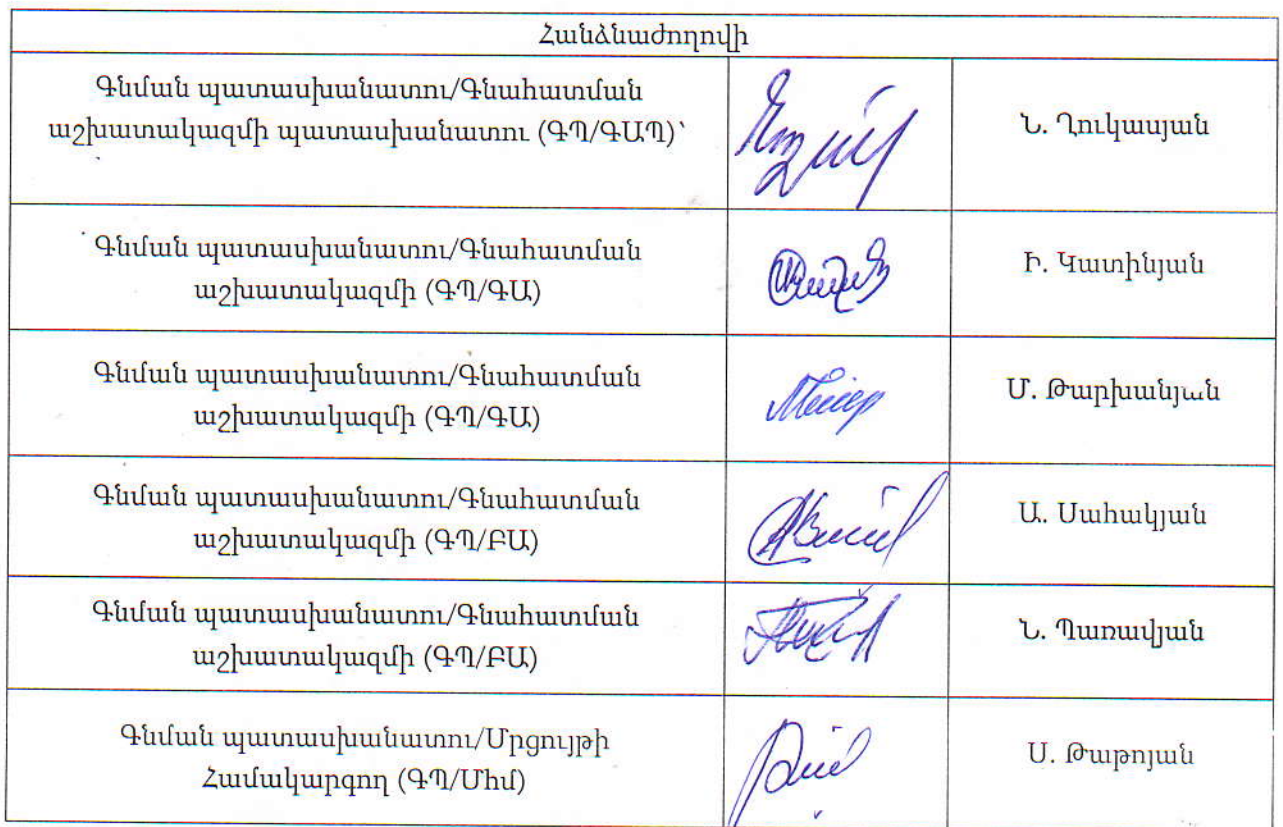 Հանձնաժողովի
Գնման պատասխանատու/Գնահատման
աշխատակազմի պատասխանատու (ԳՊ/ԳԱՊ)՝
Ն. Ղուկասյան
Գնման պատասխանատու/Գնահատման
աշխատակազմի (ԳՊ/ԳԱ)
Ի. Կատինյան
Գնման պատասխանատու/Գնահատման
աշխատակազմի (ԳՊ/ԳԱ)
Մ. Թարխանյան
Գնման պատասխանատու/Գնահատման
աշխատակազմի (ԳՊ/ԲԱ)
Ա. Սահակյան
Գնման պատասխանատու/Գնահատման
աշխատակազմի (ԳՊ/ԲԱ)
Ն. Պառավյան
Գնման պատասխանատու/Մրցույթի
Համակարգող (ԳՊ/Մհմ)
Ս. Թաթոյան